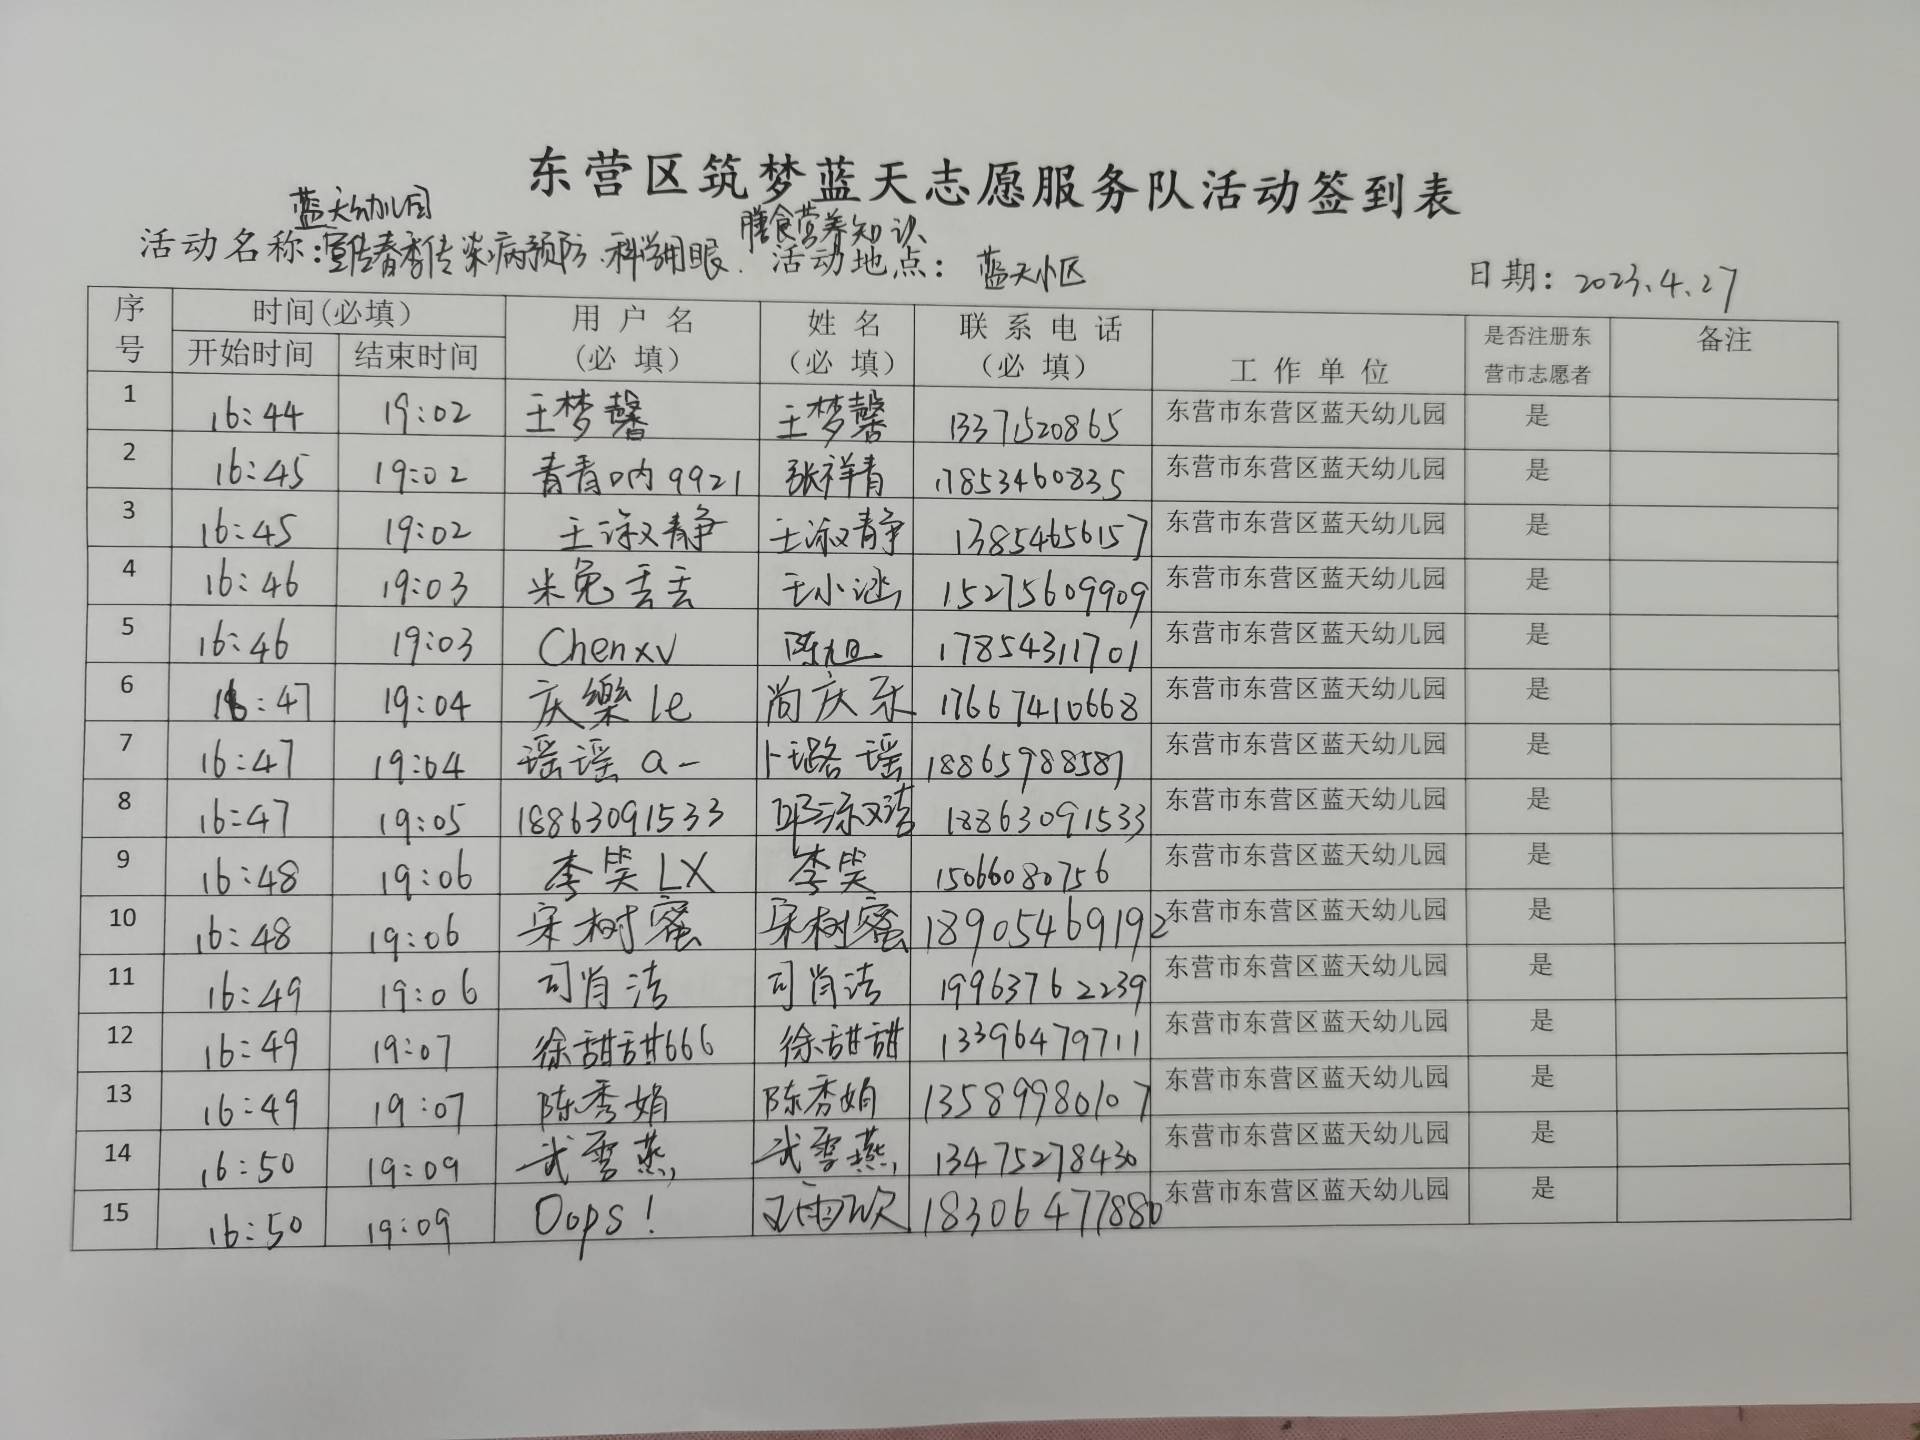 东营区筑梦蓝天志愿服务队活动签到表
蓝天幼儿园
活动名称：宣传春季传染病预防.科学用眼.膳食营养知识 活动地点：蓝天小区 日期：2023.4.27
序号 时间(必填) 用户名(必填) 姓名(必填) 联系电话(必填) 工作单位 是否注册东营市志愿者 备注
开始时间 结束时间
1 16:44 19:02 王梦馨 王梦馨 13371520865 东营市东营区蓝天幼儿园 是
2 16:45 19:02 青青吶9921 张祥青 17853460835 东营市东营区蓝天幼儿园 是
3 16:45 19:02 王淑静 王淑静 13854656157 东营市东营区蓝天幼儿园 是
4 16:46 19:03 米兔丢丢 王小涵 15275609909 东营市东营区蓝天幼儿园 是
5 16:46 19:03 Chenxv 陈旭 17854311701 东营市东营区蓝天幼儿园 是
6 16:47 19:04 庆樂le 尚庆乐 17667410668 东营市东营区蓝天幼儿园 是
7 16:47 19:04 瑶瑶a- 卜璐瑶 18865988587 东营市东营区蓝天幼儿园 是
8 16:47 19:05 18863091533 邱淑洁 18863091533 东营市东营区蓝天幼儿园 是
9 16:48 19:06 李笑LX 李笑 15066080756 东营市东营区蓝天幼儿园 是
10 16:48 19:06 宋树蜜 宋树蜜 18905469192 东营市东营区蓝天幼儿园 是
11 16:49 19:06 司肖洁 司肖洁 19963762239 东营市东营区蓝天幼儿园 是
12 16:49 19:07 徐甜甜666 徐甜甜 13396479711 东营市东营区蓝天幼儿园 是
13 16:49 19:07 陈秀娟 陈秀娟 13589980107 东营市东营区蓝天幼儿园 是
14 16:50 19:09 武雪燕 武雪燕 13475278430 东营市东营区蓝天幼儿园 是
15 16:50 19:09 Oops! 王雨欣 18306477880 东营市东营区蓝天幼儿园 是